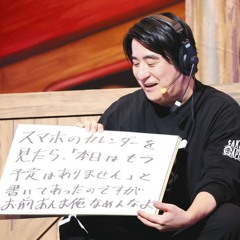 スマホのカレンダーを
見たら、「本日はもう
予定はありません」と
書いてあったのですが
お前あんま俺なめんなよ